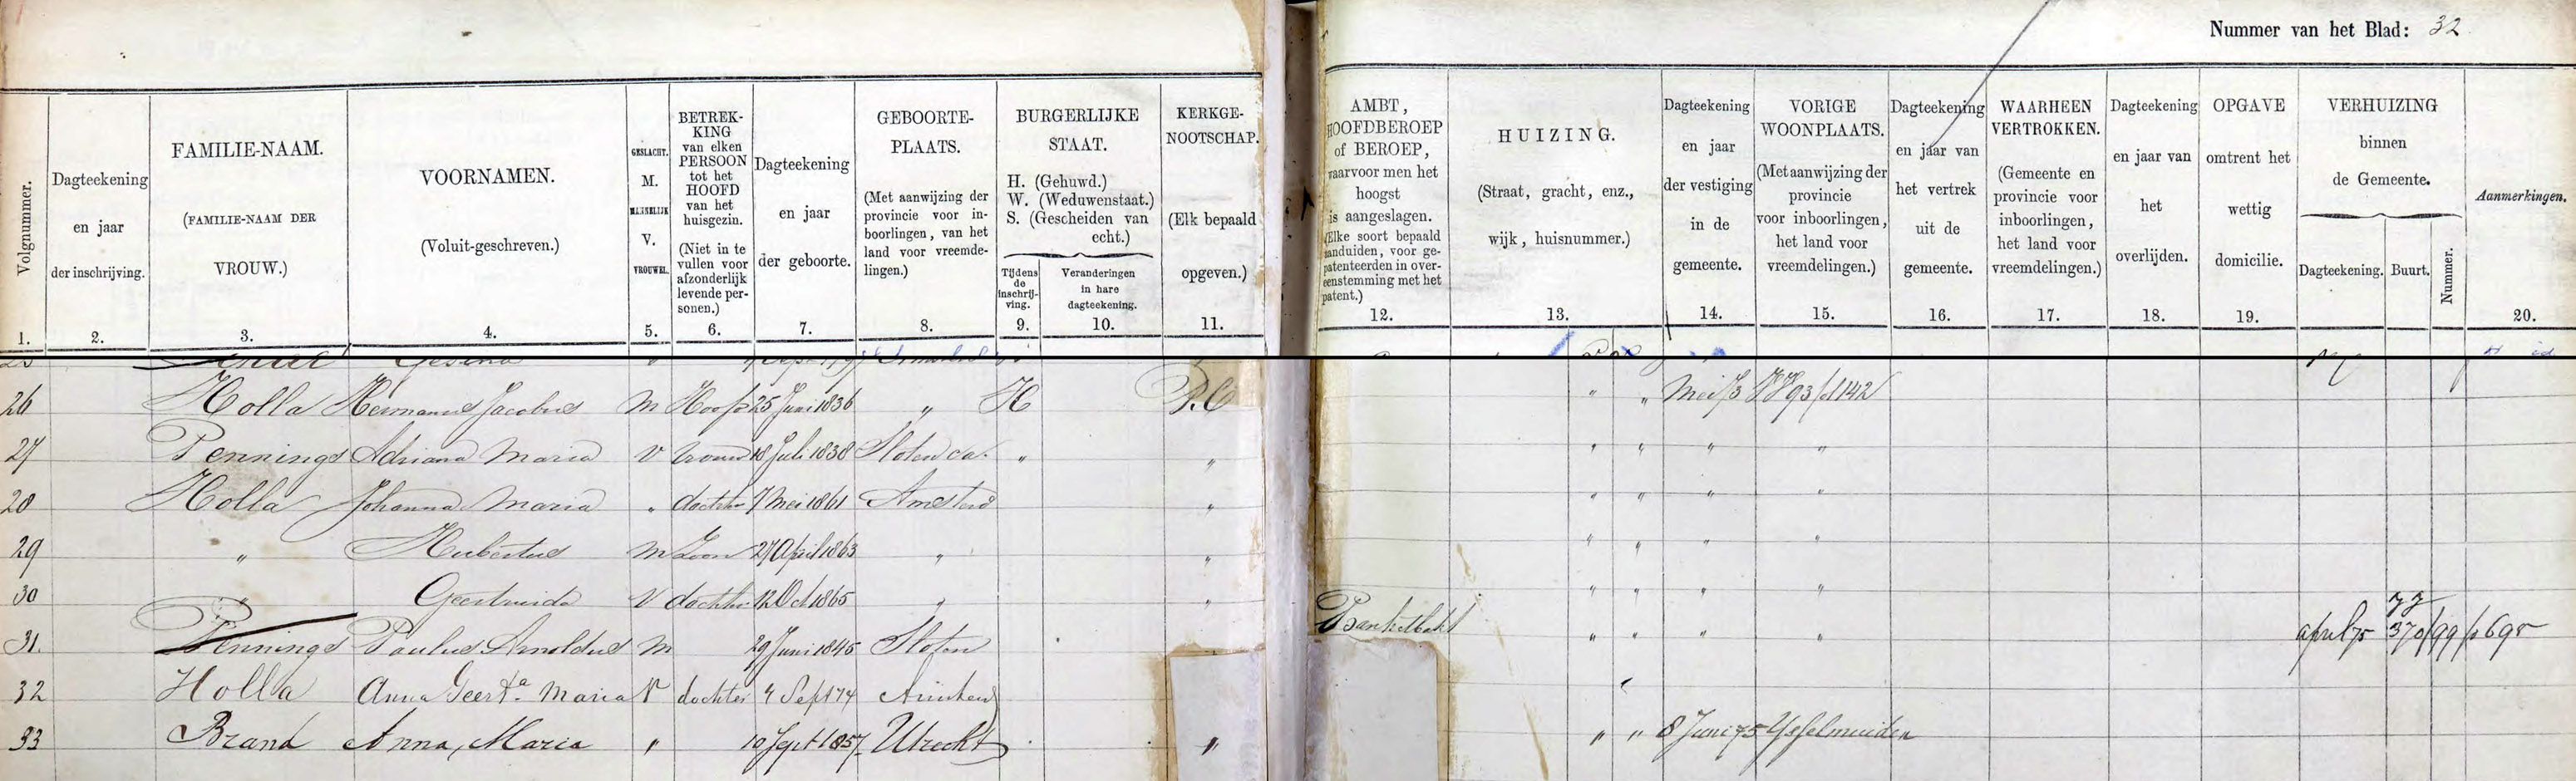 Nummer van het Blad: 32
Volgnummer.
1.
Dagteekening
en jaar
der inschrijving.
2.
FAMILIE-NAAM.
(FAMILIE-NAAM DER
VROUW.)
3.
VOORNAMEN.
(Voluit-geschreven.)
4.
GESLACHT.
M.
MANNELIJK
V.
VROUWEL.
5.
BETREK-
KING
van elken
PERSOON
tot het
HOOFD
van het
huisgezin.
(Niet in te
vullen voor
afzonderlijk
levende per-
sonen.)
6.
Dagteekening
en jaar
der geboorte.
7.
GEBOORTE-
PLAATS.
(Met aanwijzing der
provincie voor in-
boorlingen, van het
land voor vreemde-
lingen.)
8.
BURGERLIJKE
STAAT.
H. (Gehuwd.)
W. (Weduwenstaat.)
S. (Gescheiden van
echt.)
Tijdens
de
inschrij-
ving.
9.
Veranderingen
in hare
dagteekening.
10.
KERKGE-
NOOTSCHAP.
(Elk bepaald
opgeven.)
11.
AMBT,
HOOFDBEROEP
of BEROEP,
waarvoor men het
hoogst
is aangeslagen.
(Elke soort bepaald
aanduiden, voor ge-
patenteerden in over-
eenstemming met het
patent.)
12.
HUIZING.
(Straat, gracht, enz.,
wijk, huisnummer.)
13.
Dagteekening
en jaar
der vestiging
in de
gemeente.
14.
VORIGE
WOONPLAATS.
(Met aanwijzing der
provincie
voor inboorlingen,
het land voor
vreemdelingen.)
15.
Dagteekening
en jaar van
het vertrek
uit de
gemeente.
16.
WAARHEEN
VERTROKKEN.
(Gemeente en
provincie voor
inboorlingen,
het land voor
vreemdelingen.)
17.
Dagteekening
en jaar van
het
overlijden.
18.
OPGAVE
omtrent het
wettig
domicilie.
19.
VERHUIZING
binnen
de Gemeente.
Dagteekening.
Buurt.
Nummer.
Aanmerkingen.
20.
26 Holla Hermanus Jacobus M Hoofd 25 Juni 1836 " H R.C " " Mei 73
27 Pennings Adriana Maria V vrouw 18 Juli 1838 Sloten " " " " " "
28 Holla Johanna Maria " dochter 7 Mei 1861 Amsterd " " " " "
29 " Hubertus M Zoon 27 April 1863 " " " " " "
30 " Geertruida V dochter 12 Oct 1865 " " " " " "
31. Pennings Paulus Arnoldus M 29 Juni 1845 Sloten Banketbakk " " " " april 75 370/99
32 Holla Anna Geert.a Maria V dochter 4 Sept 74
33 Brand Anna, Maria " 10 Sept 1857 Utrecht " " " 8 Juni 75 IJsselmuiden